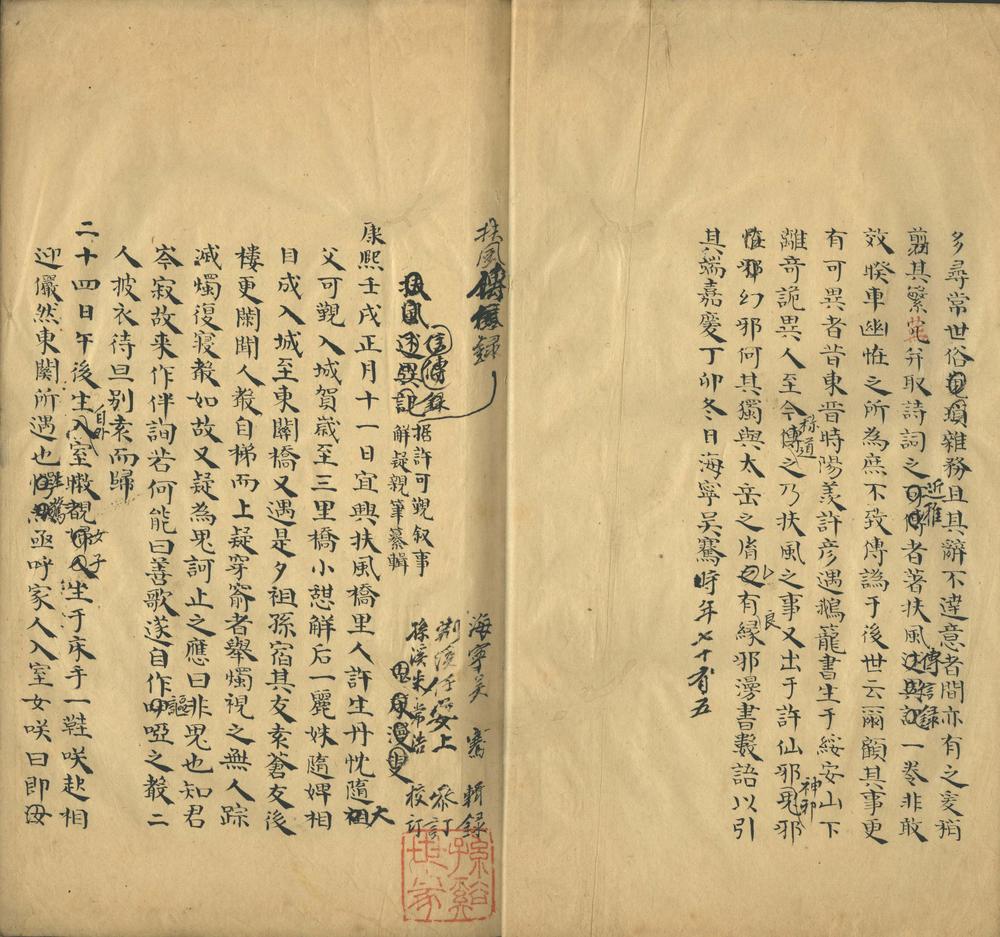 多尋常世俗瑣雜務且其辭不達意者間亦有之爰稍
翦其繁蕪弁取詩詞之近雅者著扶風傳信錄一卷非敢
效睽車幽怪之所為庶不致傳譌于後世云爾顧其事更
有可異者昔東晉時陽羨許彥遇鵝籠書生于綏安山下
離奇詭異人至今稱道之乃扶風之事又出于許仙邪鬼邪神邪
怪邪幻邪何其獨與太岳之胄良有緣邪漫書數語以引
其端嘉慶丁卯冬日海寧吳騫時年七十有五
扶風傳信錄
海寧吳騫輯錄
荊溪任安上參訂
孫溪朱常浩校訂
扶風述異記
信傳錄
据許可觀叙事
解疑親筆纂輯
康熙壬戌正月十一日宜興扶風橋里人許生丹忱隨大
父可觀入城賀歲至三里橋小憩解后一麗姝隨婢相
目成入城至東關橋又遇是夕祖孫宿其友袁蒼友後
樓更闌聞人聲自梯而上疑穿窬者舉燭視之無人踪
滅燭復寢聲如故又疑為鬼訶止之應曰非鬼也知君
岑寂故来作伴詢若何能曰善歌遂自作謳啞之聲二
人披衣待旦别袁而歸
二十四日午後生自外入室瞥覩女子坐于床手一鞋咲起相
迎儼然東關所遇也驚亟呼家人入室女咲曰即毋